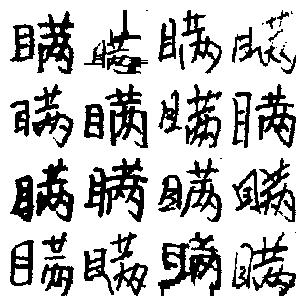 瞒瞒瞒瞒
瞒瞒瞒瞒
瞒瞒瞒瞒
瞒瞒瞒瞒